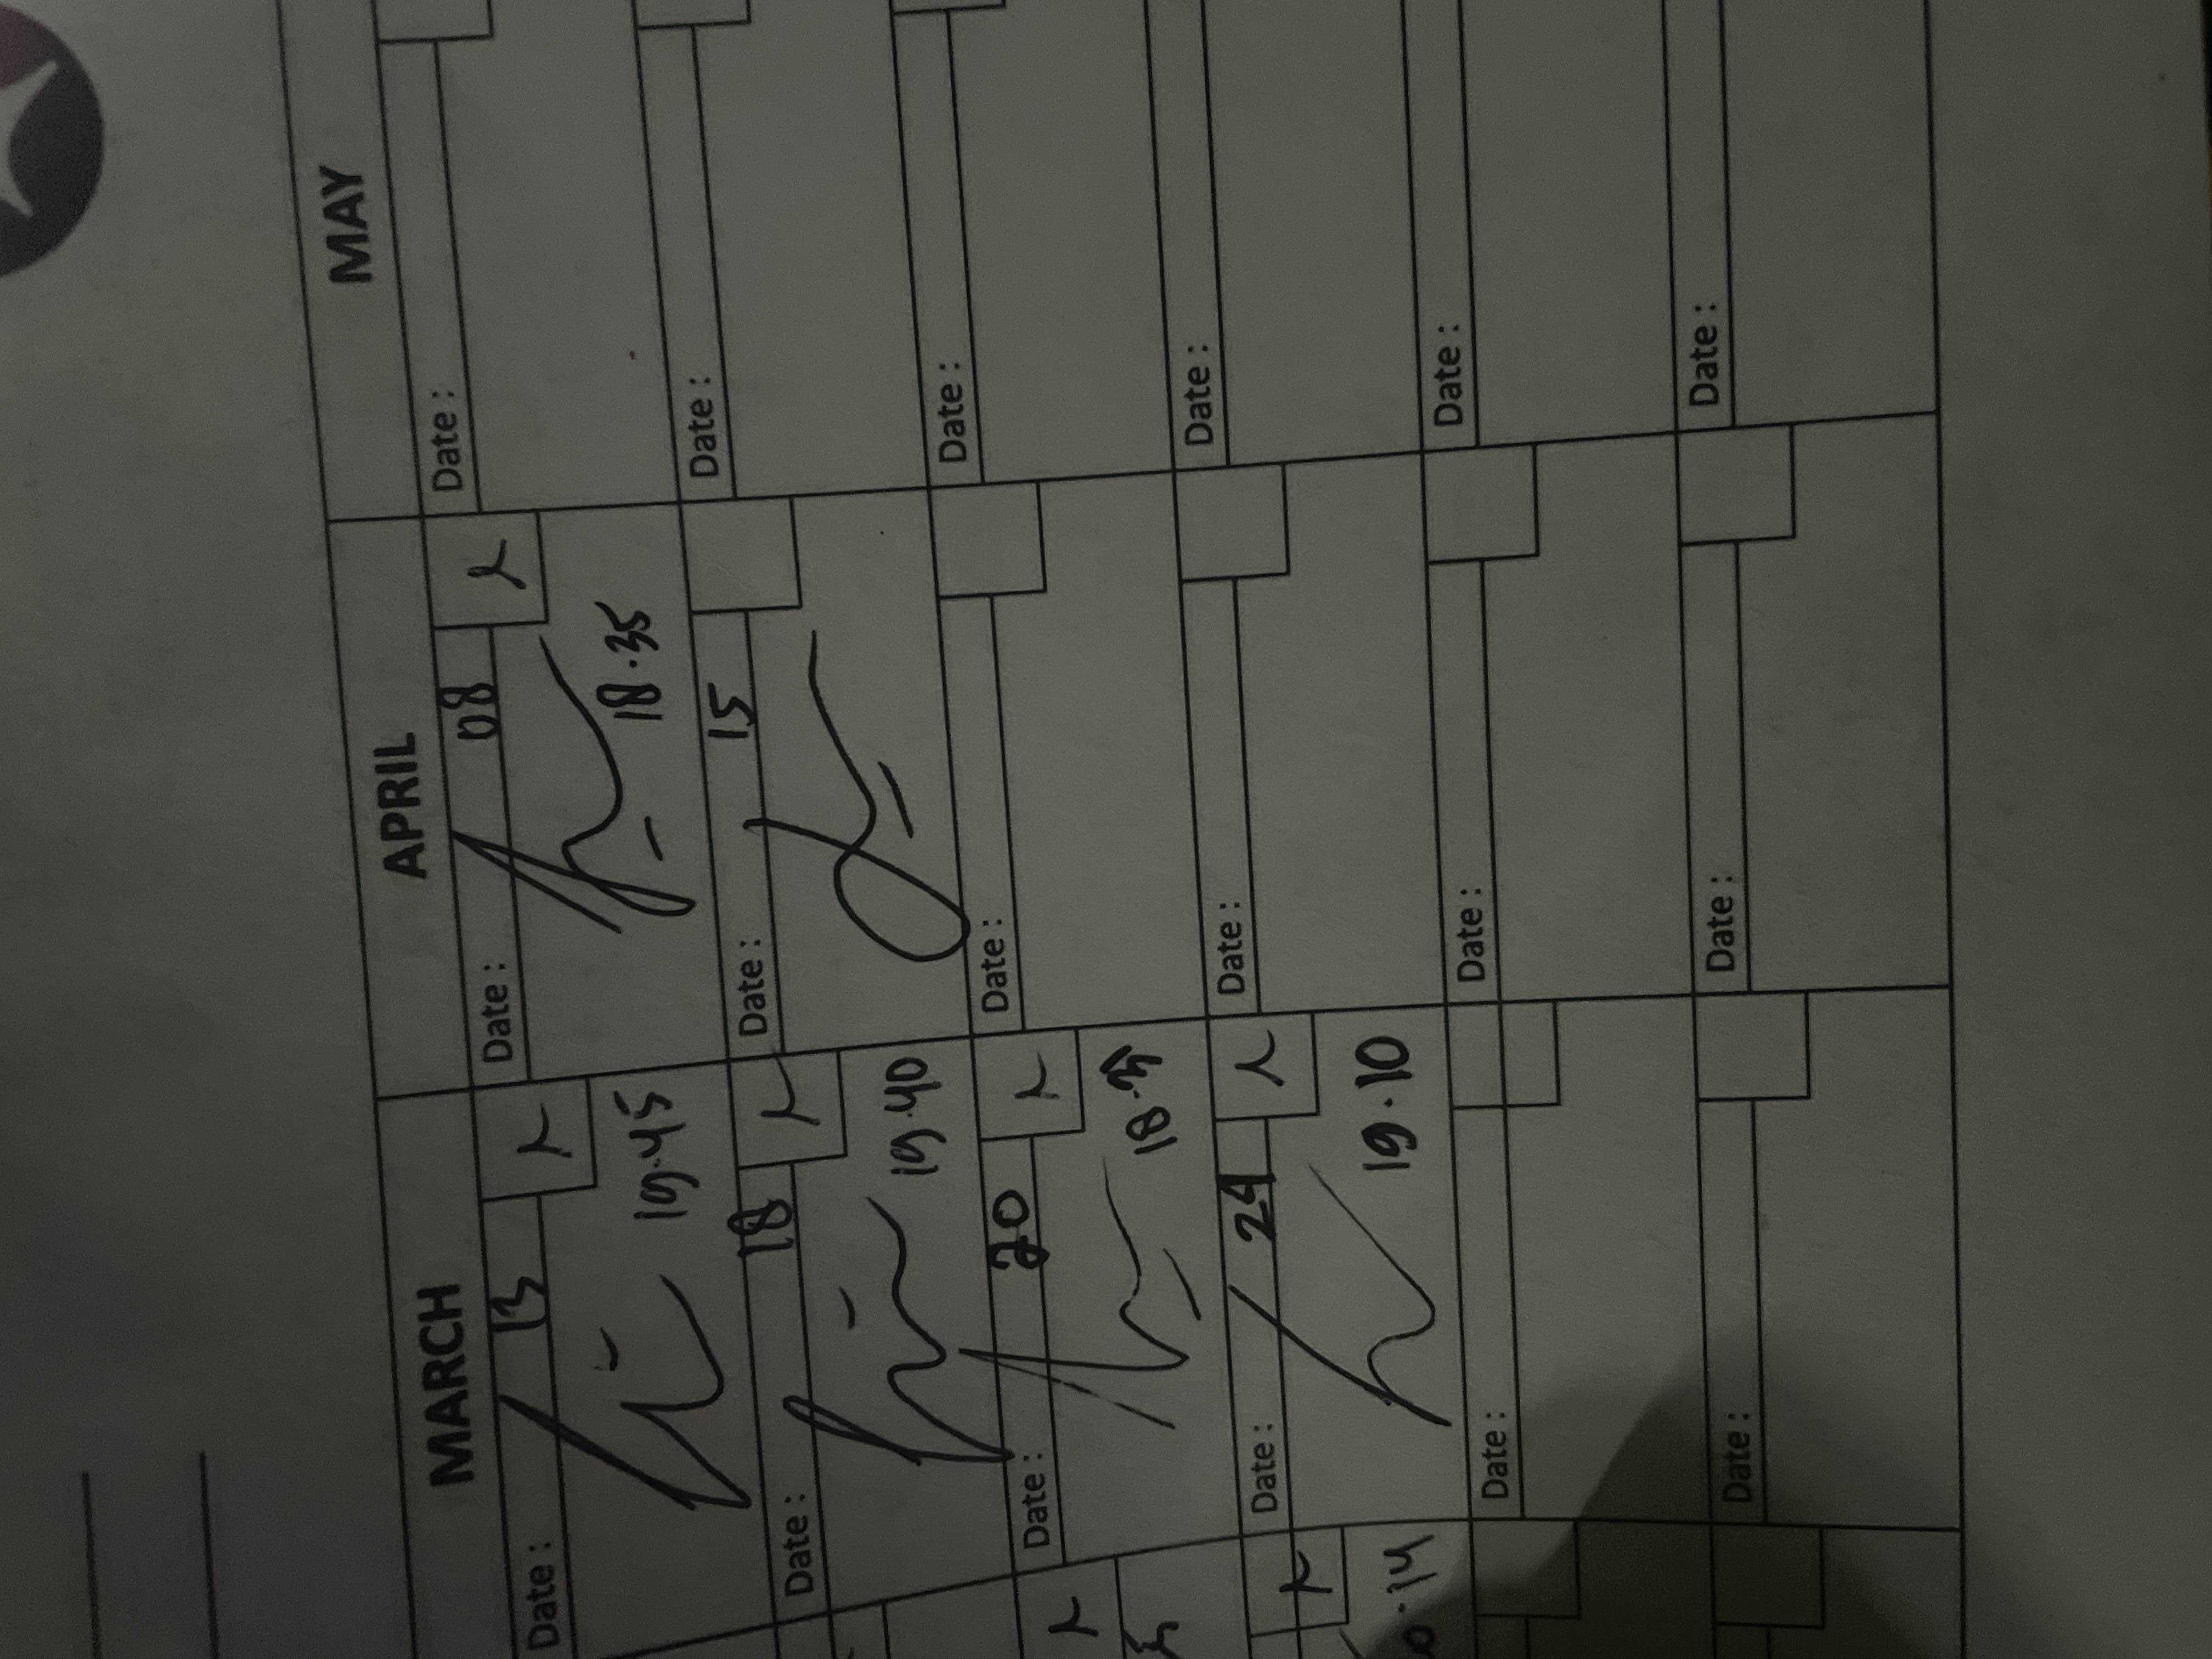 MARCH APRIL MAY
Date : 13 Date : 08 Date :
19.45 18.35
Date : 18 Date : 15 Date :
19.40
Date : 20 Date : Date :
Date : 24 Date : Date :
19.10
Date : Date : Date :
Date : Date : Date :